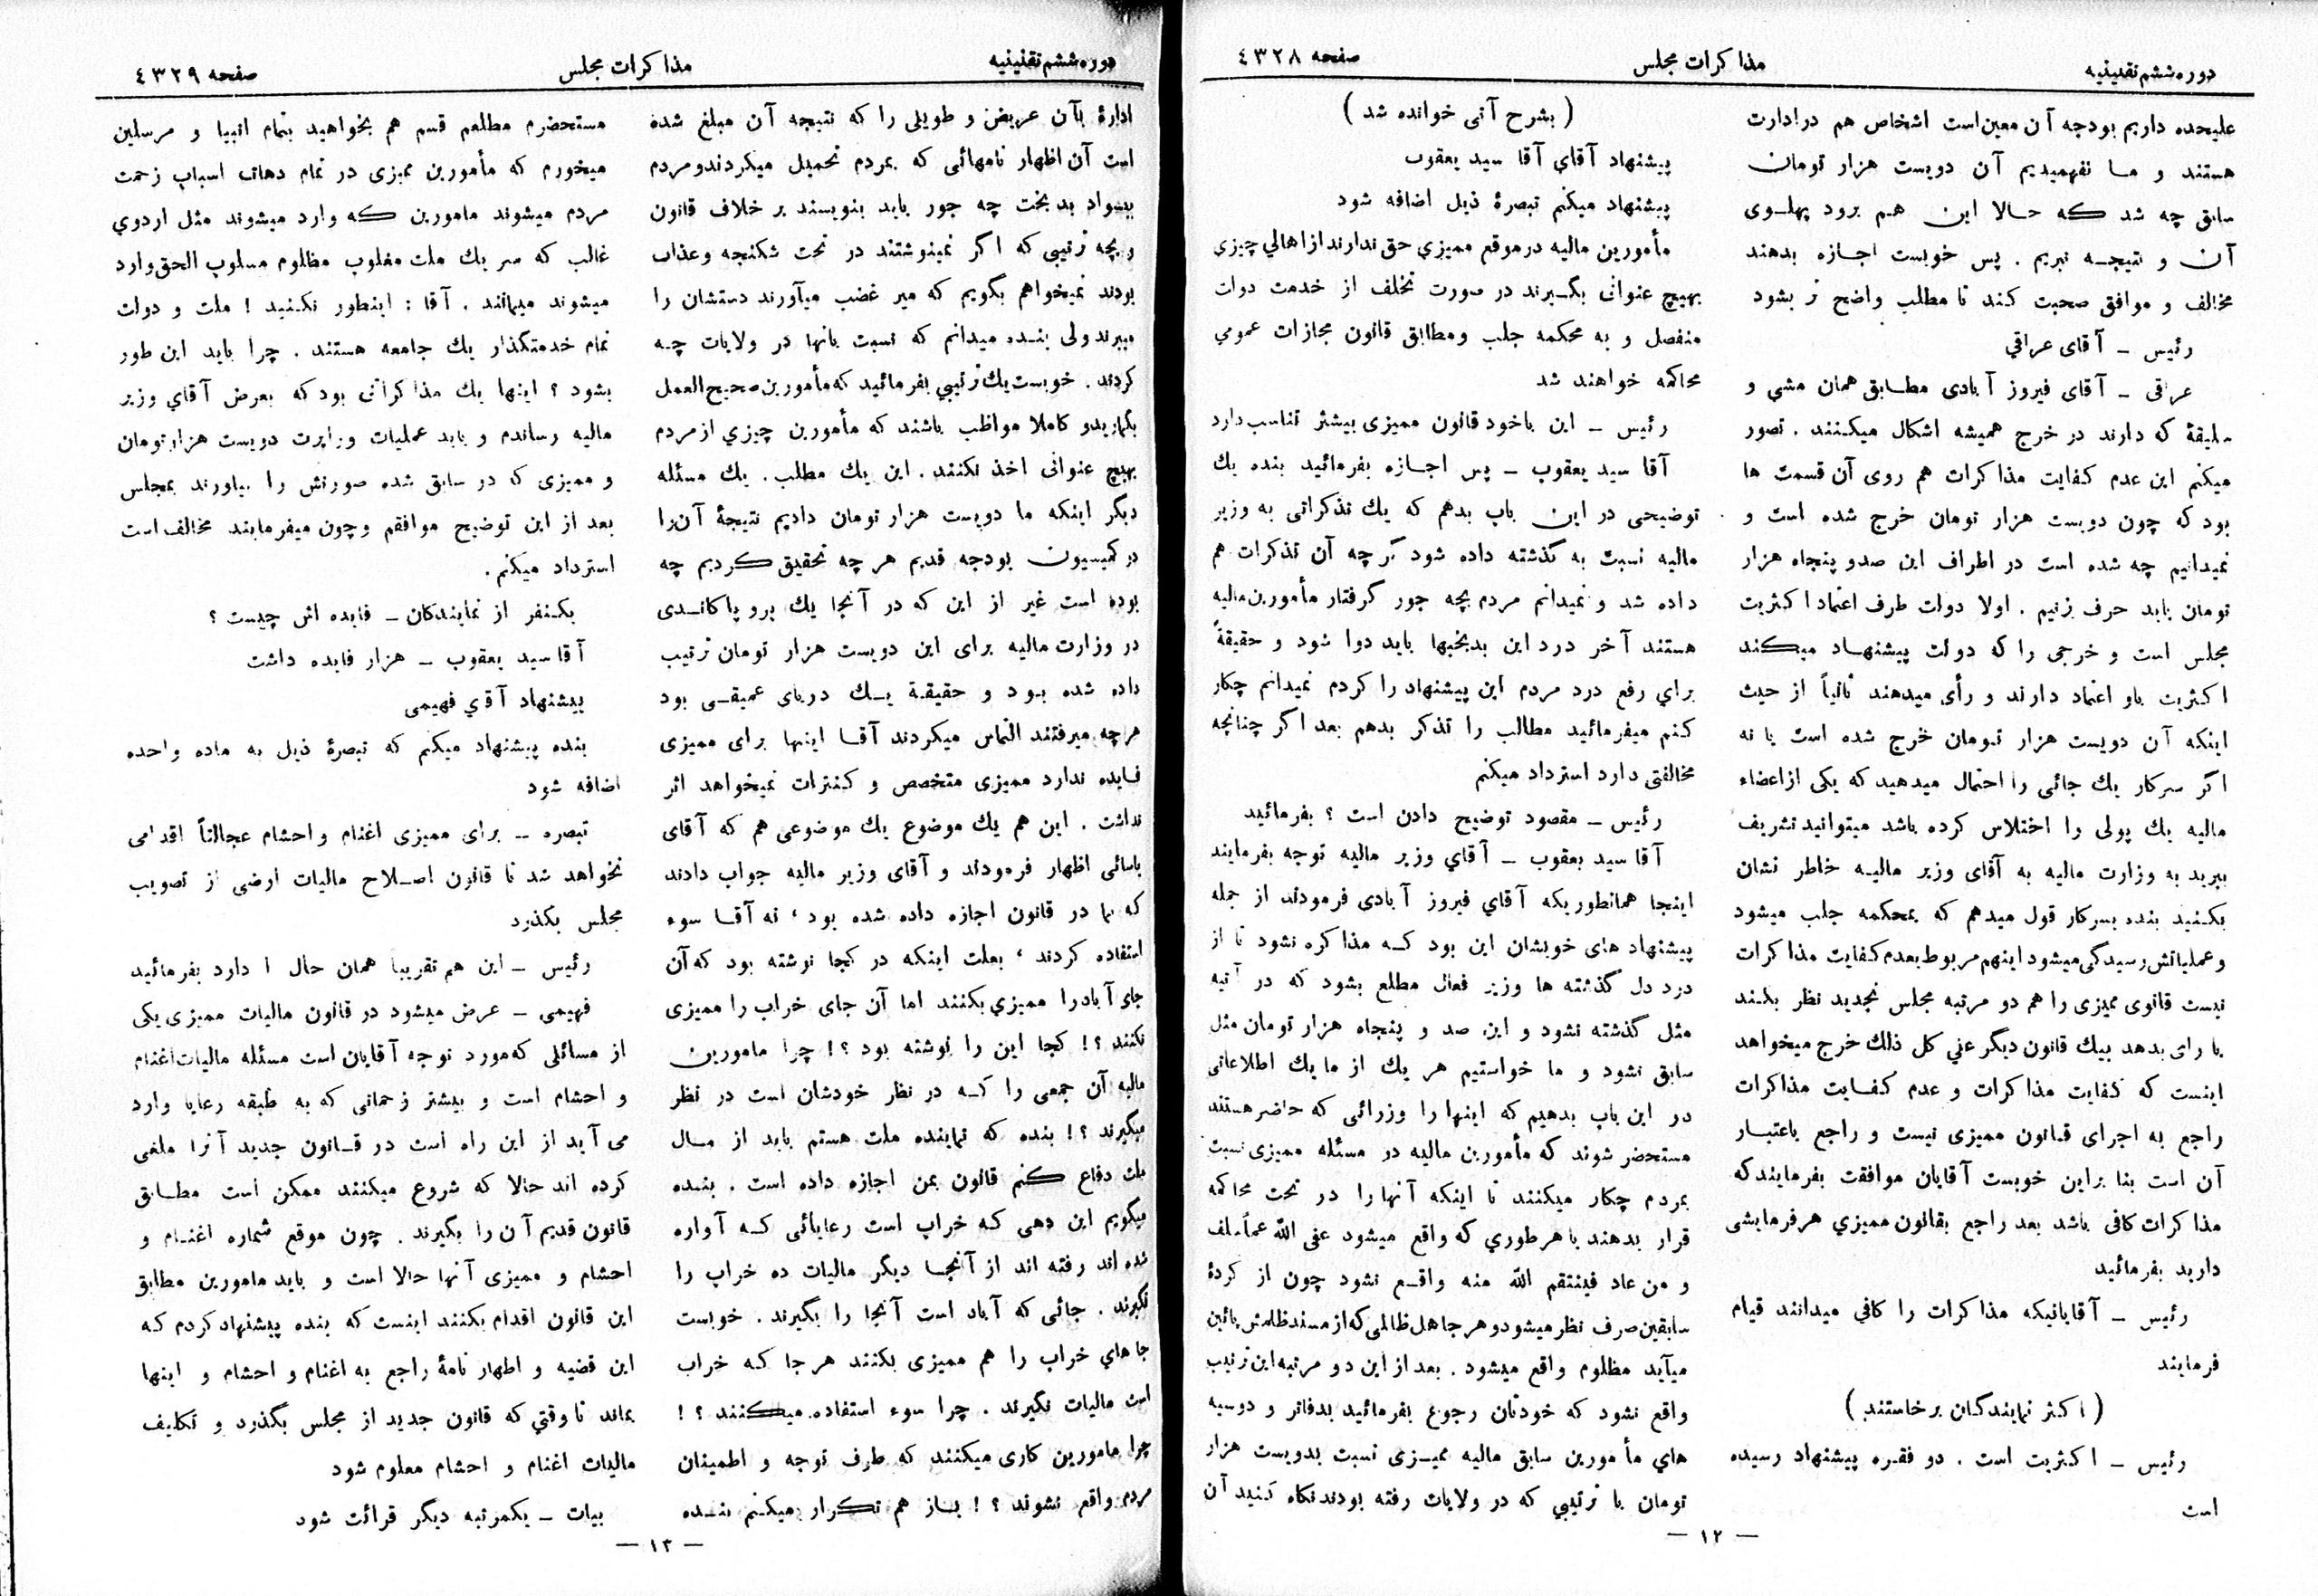 دوره ششم تقنینیه
مذاکرات مجلس
صفحه ٤٣٢٨
علیحده داریم بودجه آن معین است اشخاص هم در ادارت
هستند و ما نفهمیدیم آن دویست هزار تومان
سابق چه شد که حالا این هم برود پهلوی
آن و نتیجه نبریم . پس خوبست اجازه بدهند
مخالف و موافق صحبت کند تا مطلب واضح تر بشود
رئیس ـ آقای عراقی
عراقی ـ آقای فیروز آبادی مطابق همان مشی و
سلیقهٔ که دارند در خرج همیشه اشکال میکنند . تصور
میکنم این عدم کفایت مذاکرات هم روی آن قسمت ها
بود که چون دویست هزار تومان خرج شده است و
نمیدانیم چه شده است در اطراف این صدو پنجاه هزار
تومان باید حرف بزنیم . اولا دولت طرف اعتماد اکثریت
مجلس است و خرجی را که دولت پیشنهاد میکند
اکثریت باو اعتماد دارند و رأی میدهند ثانیاً از حیث
اینکه آن دویست هزار تومان خرج شده است یا نه
اگر سرکار یك جائی را احتمال میدهید که یکی از اعضاء
مالیه یك پولی را اختلاس کرده باشد میتوانید تشریف
ببرید به وزارت مالیه به آقای وزیر مالیه خاطر نشان
بکنید بنده بسرکار قول میدهم که بمحکمه جلب میشود
و عملیاتش رسیدگی میشود اینهم مربوط بعدم کفایت مذاکرات
نیست قانون ممیزی را هم دو مرتبه مجلس تجدید نظر بکند
یا رای بدهد بیك قانون دیگر علی کل ذلك خرج میخواهد
اینست که کفایت مذاکرات و عدم کفایت مذاکرات
راجع به اجرای قانون ممیزی نیست و راجع باعتبار
آن است بنا براین خوبست آقایان موافقت بفرمایند که
مذاکرات کافی باشد بعد راجع بقانون ممیزي هر فرمایشی
دارید بفرمائید
رئیس ـ آقایانیکه مذاکرات را کافی میدانند قیام
فرمایند
( اکثر نمایندگان برخاستند )
رئیس ـ اکثریت است . دو فقره پیشنهاد رسیده
است
( بشرح آتی خوانده شد )
پیشنهاد آقاي آقا سید یعقوب
پیشنهاد میکنم تبصرهٔ ذیل اضافه شود
مأمورین مالیه در موقع ممیزي حق ندارند از اهالی چیزي
بهیچ عنوانی بگیرند در صورت تخلف از خدمت دولت
منفصل و به محکمه جلب و مطابق قانون مجازات عمومی
محاکمه خواهند شد
رئیس ـ این با خود قانون ممیزی بیشتر تناسب دارد
آقا سید یعقوب ـ پس اجازه بفرمائید بنده یك
توضیحی در این باب بدهم که یك تذکراتی به وزیر
مالیه نسبت به گذشته داده شود گر چه آن تذکرات هم
داده شد و نمیدانم مردم بچه جور گرفتار مأمورین مالیه
هستند آخر درد این بدبختها باید دوا شود و حقیقةً
براي رفع درد مردم این پیشنهاد را کردم نمیدانم چکار
کنم میفرمائید مطالب را تذکر بدهم بعد اگر چنانچه
مخالفتی دارد استرداد میکنم
رئیس ـ مقصود توضیح دادن است ؟ بفرمائید
آقا سید یعقوب ـ آقاي وزیر مالیه توجه بفرمایند
اینجا همانطوریکه آقاي فیروز آبادی فرمودند از جمله
پیشنهاد های خوبشان این بود که مذاکره نشود تا از
درد دل گذشته ها وزیر فعال مطلع بشود که در آتیه
مثل گذشته نشود و این صد و پنجاه هزار تومان مثل
سابق نشود و ما خواستیم هر یك از ما یك اطلاعاتی
در این باب بدهیم که اینها را وزرائی که حاضر هستند
مستحضر شوند که مأمورین مالیه در مسئله ممیزی نسبت
بمردم چکار میکنند تا اینکه آنها را در تحت محاکمه
قرار بدهند یا هر طوري که واقع میشود عفی الله عما سلف
و من عاد فینتقم الله منه واقع نشود چون از کردهٔ
سابقین صرف نظر میشود و هر جاهل ظالمی که از مسند ظلمش پائین
میآید مظلوم واقع میشود . بعد از این دو مرتبه این ترتیب
واقع نشود که خودتان رجوع بفرمائید بدفاتر و دوسیه
هاي مأمورین سابق مالیه ممیزی نسبت بدویست هزار
تومان یا ترتیبي که در ولایات رفته بودند نگاه کنید آن
— ١٢ —
دوره ششم تقنینیه
مذاکرات مجلس
صفحه ٤٣٢٩
ادارهٔ بآن عریض و طویلی را که نتیجه آن مبلغ شده
است آن اظهار نامهائی که بمردم تحمیل میکردند و مردم
بیسواد بد بخت چه جور باید بنویسند بر خلاف قانون
و بچه ترتیبی که اگر نمینوشتند در تحت شکنجه و عذاب
بودند نمیخواهم بگویم که میر غضب میآورند دستشان را
میبرند ولی بنده میدانم که نسبت بانها در ولایات چه
کردند . خوبست یك ترتیبي بفرمائید که مأمورین صحیح العمل
بگمارید و کاملا مواظب باشند که مأمورین چیزي از مردم
بهیچ عنوانی اخذ نکنند . این یك مطلب . یك مسئله
دیگر اینکه ما دویست هزار تومان دادیم نتیجهٔ آن را
در کمیسیون بودجه قدیم هر چه تحقیق کردیم چه
بوده است غیر از این که در آنجا یك پرو پاکاندی
در وزارت مالیه برای این دویست هزار تومان ترتیب
داده شده بود و حقیقة یك دریای عمیقی بود
هر چه میرفتند التماس میکردند آقا اینها برای ممیزی
فایده ندارد ممیزی متخصص و کنترات نمیخواهد اثر
نداشت . این هم یك موضوع یك موضوعی هم که آقای
یاسائی اظهار فرمودند و آقای وزیر مالیه جواب دادند
که بما در قانون اجازه داده شده بود ، نه آقا سوء
استفاده کردند ، بعلت اینکه در کجا نوشته بود که آن
جای آباد را ممیزي بکنند اما آن جای خراب را ممیزی
نکنند ؟! کجا این را نوشته بود ؟! چرا مامورین
مالیه آن جمعی را که در نظر خودشان است در نظر
میگیرند ؟! بنده که نماینده ملت هستم باید از مال
ملت دفاع کنم قانون بمن اجازه داده است . بنده
میگویم این دهی که خراب است رعایائی که آواره
شده اند رفته اند از آنجا دیگر مالیات ده خراب را
نگیرند . جائی که آباد است آنجا را بگیرند . خوبست
جاهاي خراب را هم ممیزی بکنند هر جا که خراب
است مالیات نگیرند . چرا سوء استفاده میکنند ؟!
چرا مامورین کاری میکنند که طرف توجه و اطمینان
مردم واقع نشوند ؟! باز هم تکرار میکنم بنده
مستحضرم مطلعم قسم هم بخواهید بتمام انبیا و مرسلین
میخورم که مأمورین ممیزی در تمام دهات اسباب زحمت
مردم میشوند مامورین که وارد میشوند مثل اردوي
غالب که سر یك ملت مغلوب مظلوم مسلوب الحق وارد
میشوند میمانند . آقا : اینطور نکنید ! ملت و دولت
تمام خدمتگذار یك جامعه هستند . چرا باید این طور
بشود ؟ اینها یك مذاکراتی بود که بعرض آقاي وزیر
مالیه رساندم و باید عملیات و راپرت دویست هزار تومان
و ممیزی که در سابق شده صورتش را بیاورند بمجلس
بعد از این توضیح موافقم و چون میفرمایند مخالف است
استرداد میکنم .
یکنفر از نمایندگان ـ فایده اش چیست ؟
آقا سید یعقوب ـ هزار فایده داشت
پیشنهاد آقاي فهیمی
بنده پیشنهاد میکنم که تبصرهٔ ذیل به ماده واحده
اضافه شود
تبصره ـ برای ممیزی اغنام و احشام عجالتاً اقدامی
نخواهد شد تا قانون اصلاح مالیات ارضی از تصویب
مجلس بگذرد
رئیس ـ این هم تقریباً همان حال را دارد بفرمائید
فهیمی ـ عرض میشود در قانون مالیات ممیزی یکی
از مسائلی که مورد توجه آقایان است مسئله مالیات اغنام
و احشام است و بیشتر زحماتی که به طبقه رعایا وارد
می آید از این راه است در قانون جدید آنرا ملغی
کرده اند حالا که شروع میکنند ممکن است مطابق
قانون قدیم آن را بگیرند . چون موقع شماره اغنام و
احشام و ممیزی آنها حالا است و باید مامورین مطابق
این قانون اقدام بکنند اینست که بنده پیشنهاد کردم که
این قضیه و اظهار نامهٔ راجع به اغنام و احشام و اینها
بماند تا وقتي که قانون جدید از مجلس بگذرد و تکلیف
مالیات اغنام و احشام معلوم شود
بیات ـ یکمرتبه دیگر قرائت شود
— ١٣ —